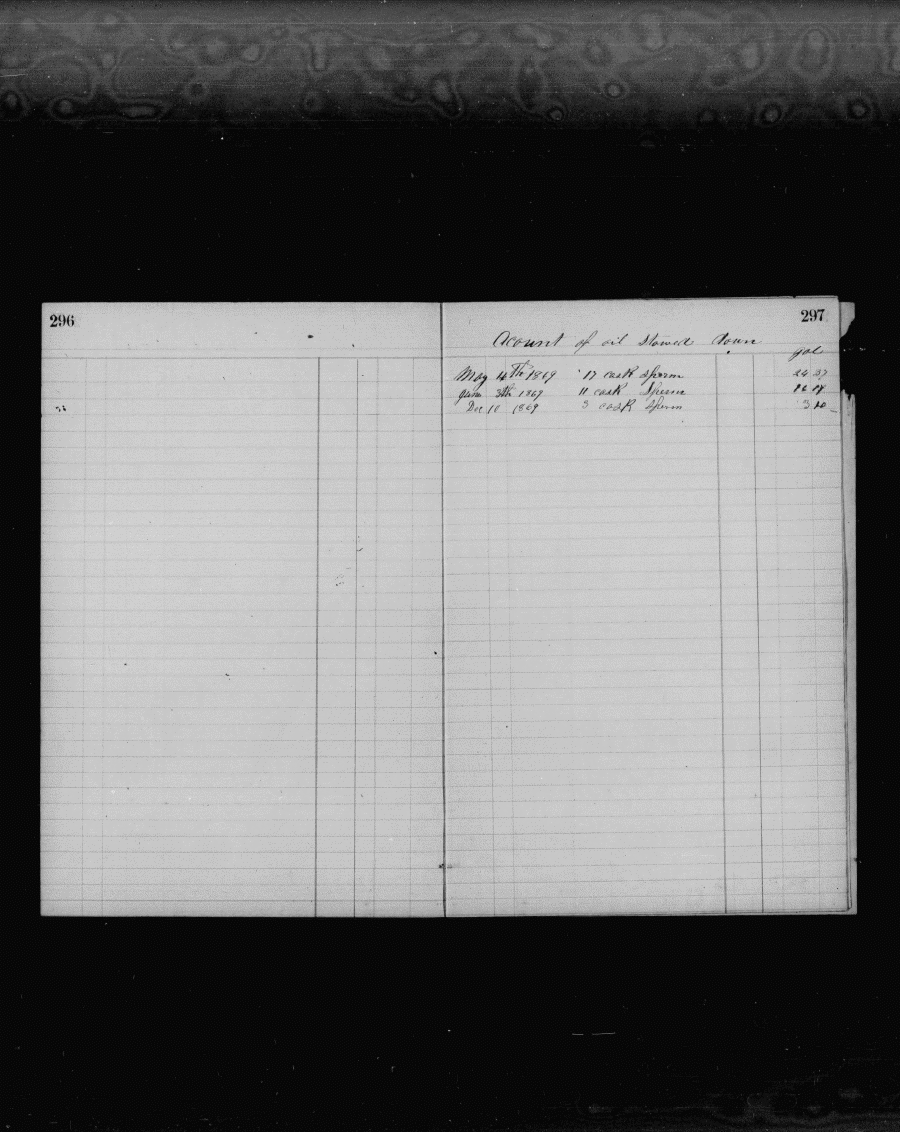 296
297
Acount of oil stowed down
gal
May 4th 1869 17 cask sperm 24 37
June 3th 1869 11 cask Sperm
Dec 10 1869 3 cask sperm 3 10